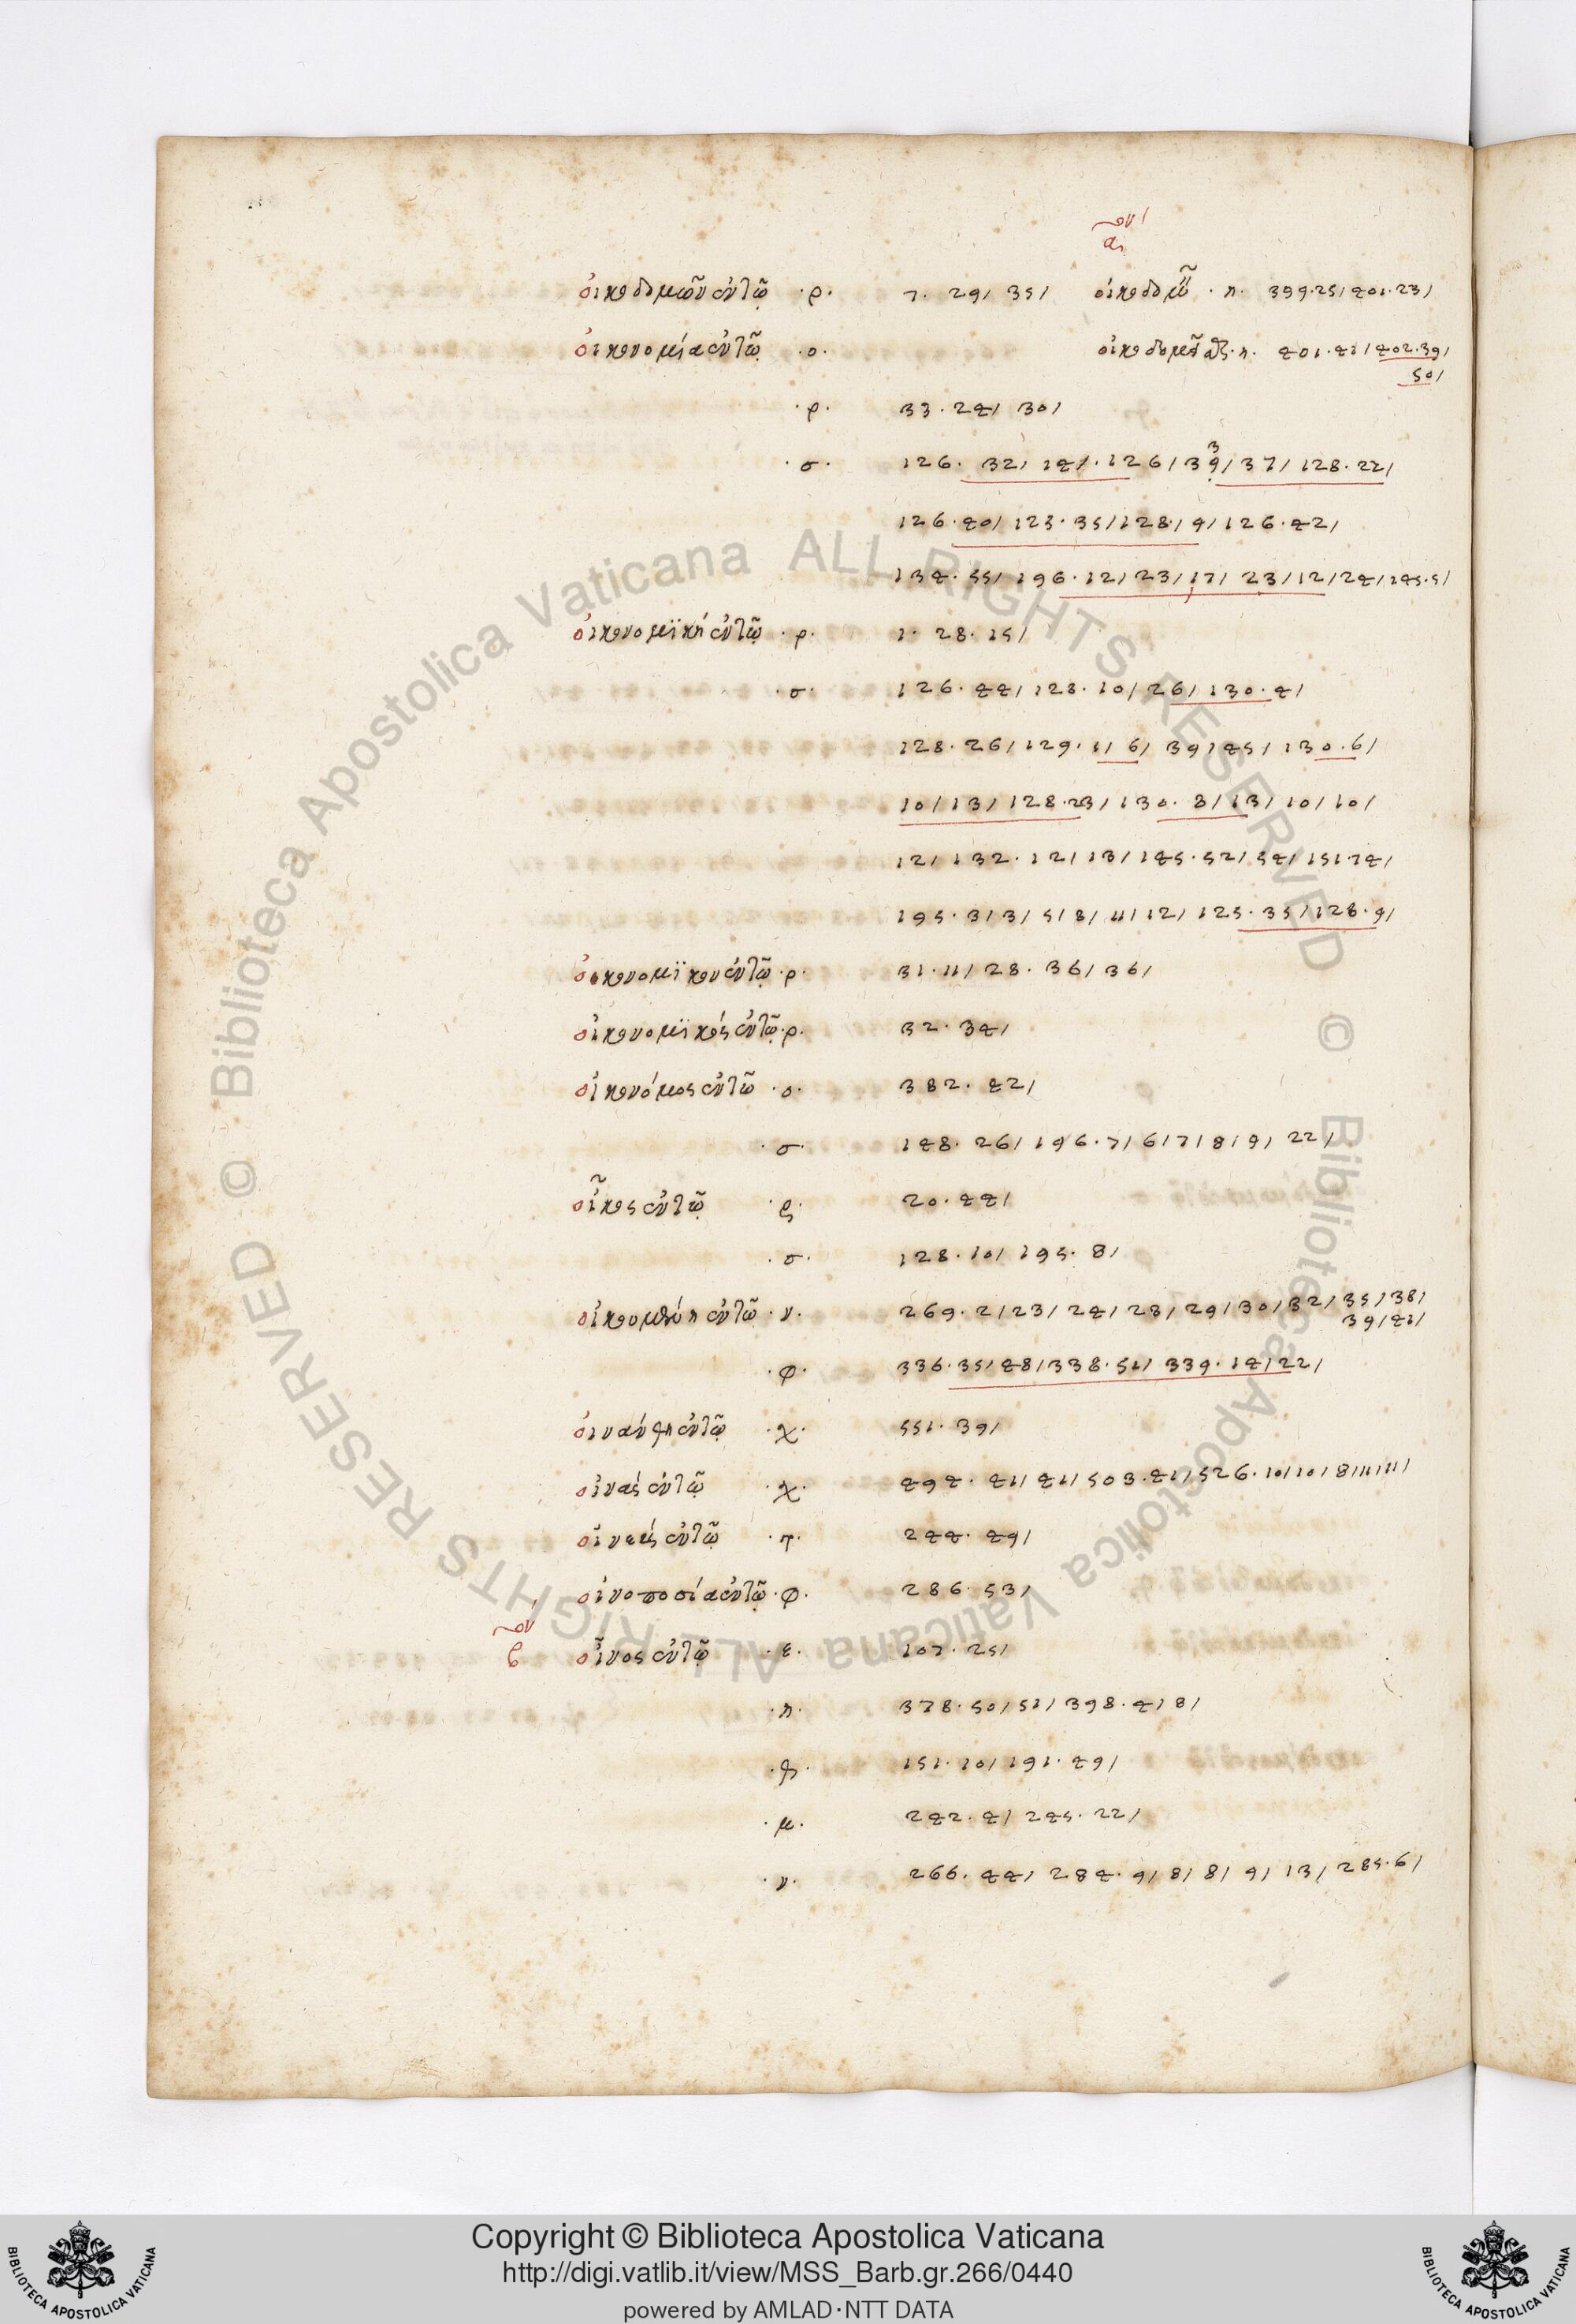 οἰκοδομῶν ἐν τῷ · ρ · 7 · 29 / 35 /
· η · 399 · 25 / 401 · 23 /
οἰκονομία ἐν τῷ · ο ·
· η · 401 · 41 / 402 · 39 /
50 /
· ρ · 33 · 24 / 30 /
· σ · 126 · 32 / 141 · 126 / 39 / 37 / 128 · 22 /
3
126 · 40 / 123 · 35 / 128 / 9 / 126 · 42 /
134 · 55 / 196 · 12 / 23 / 17 / 23 / 12 / 24 / 145 · 5 /
οἰκονομϊκὴ ἐν τῷ · ρ · 1 · 28 · 15 /
· σ · 126 · 44 / 128 · 10 / 26 / 130 · 4 /
128 · 26 / 129 · 1 / 6 / 39 / 45 / 130 · 6 /
10 / 13 / 128 · 23 / 130 · 8 / 13 / 10 / 10 /
12 / 132 · 12 / 13 / 145 · 52 / 54 / 151 · 14 /
195 · 3 / 3 / 5 / 8 / 11 / 12 / 125 · 35 / 128 · 9 /
οἰκονομϊκὸν ἐν τῷ · ρ · 31 · 11 / 28 · 36 / 36 /
οἰκονομϊκός ἐν τῷ · ρ · 32 · 34 /
οἰκονόμος ἐν τῷ · ο · 382 · 42 /
· σ · 148 · 26 / 196 · 7 / 6 / 7 / 8 / 9 / 22 /
οἶκος ἐν τῷ · ρ · 20 · 44 /
· σ · 128 · 10 / 195 · 8 /
οἰκουμένη ἐν τῷ · ν · 269 · 2 / 23 / 24 / 28 / 29 / 30 / 32 / 35 / 38 /
39 / 41 /
· φ · 336 · 35 / 48 / 338 · 51 / 339 · 14 / 22 /
οἰνάνθη ἐν τῷ · χ · 551 · 39 /
οἰνάς ἐν τῷ · χ · 494 · 41 / 41 / 503 · 41 / 526 · 10 / 10 / 8 / 11 / 11 /
ἐν τῷ · τ · 244 · 49 /
οἰνοποσία ἐν τῷ · φ · 286 · 53 /
οἶνος ἐν τῷ · ε · 107 · 25 /
· η · 378 · 50 / 51 / 398 · 4 / 8 /
· θ · 151 · 10 / 191 · 49 /
· μ · 242 · 4 / 245 · 22 /
· ν · 266 · 44 / 284 · 9 / 8 / 8 / 9 / 13 / 285 · 6 /
© Biblioteca Apostolica Vaticana ALL RIGHTS RESERVED
© Biblioteca Apostolica Vaticana ALL RIGHTS RESERVED
BIBLIOTECA APOSTOLICA VATICANA
Copyright © Biblioteca Apostolica Vaticana
http://digi.vatlib.it/view/MSS_Barb.gr.266/0440
powered by AMLAD·NTT DATA
BIBLIOTECA APOSTOLICA VATICANA